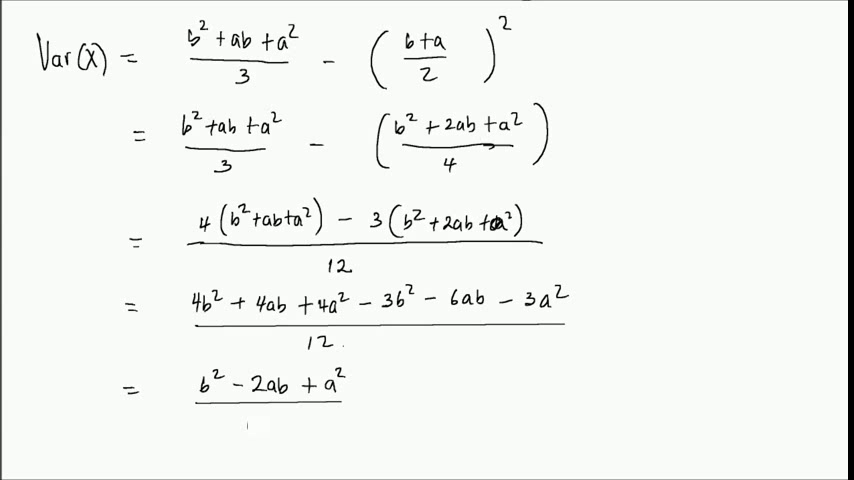 Var(X) = (b² + ab + a²)/3 - ((b+a)/2)²
= (b² + ab + a²)/3 - ((b² + 2ab + a²)/4)
= (4(b² + ab + a²) - 3(b² + 2ab + a²))/12
= (4b² + 4ab + 4a² - 3b² - 6ab - 3a²)/12
= (b² - 2ab + a²)/